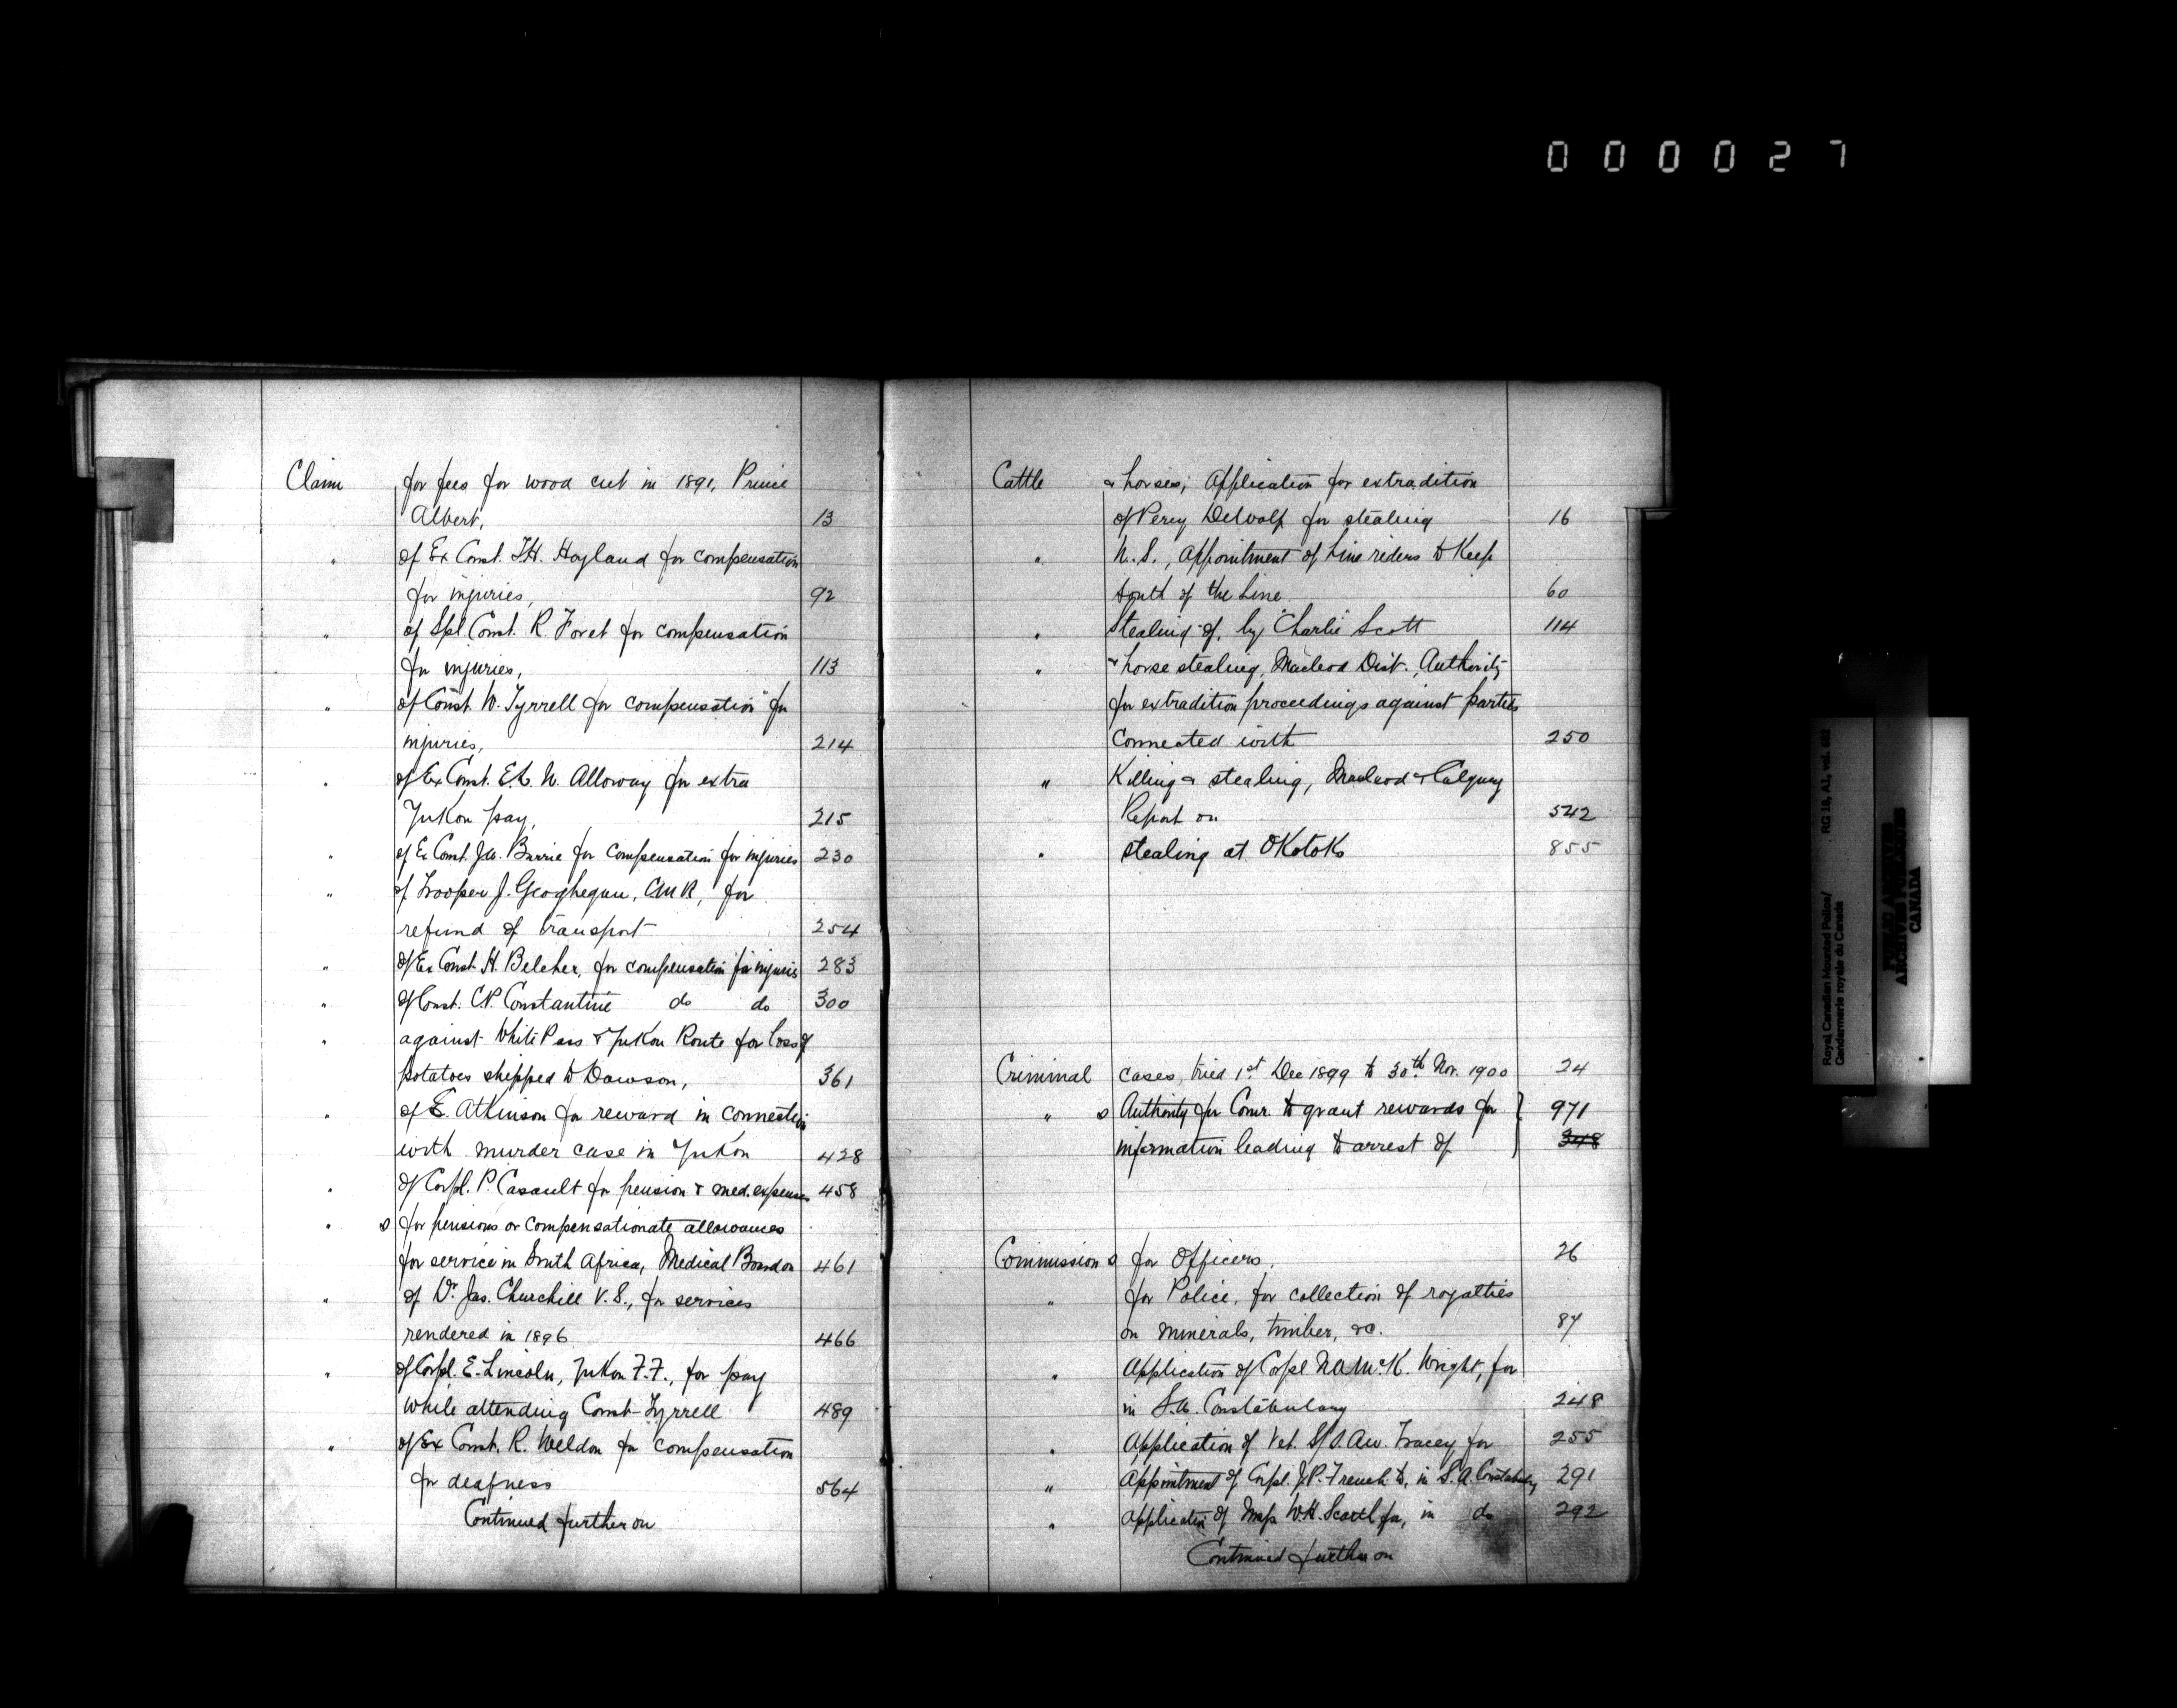 0 0 0 0 2 7
Claim for fees for wood cut in 1891, Prince
Albert, 13
" of Ex Const. T.H. Hayland for compensation
for injuries, 92
" of Spl Const. R. Foret for compensation
for injuries, 113
" of Const. W. Tyrrell for compensation for
injuries, 214
" of Ex Const. E.L. N. Alloway for extra
Yukon pay, 215
" of Ex Const. J.W. Barrie for compensation for injuries 230
" of Trooper J. Geoghegan, CMR, for
refund of transport 254
" of Ex Const. H. Belcher, for compensation for injuries 283
" of Const. C.P. Constantine do do 300
" against White Pass & Yukon Route for loss of
potatoes shipped to Dawson, 361
" of E. Atkinson for reward in connection
with murder case in Yukon 428
" of Corpl. P. Casault for pension & med. expenses 458
" s for pensions or compensationate allowances
for service in South Africa, Medical Board on 461
" of Dr. Jas. Churchill V.S., for services
rendered in 1896 466
" of Corpl. E. Lincoln, Yukon F.F., for pay
while attending Const Tyrrell 489
" of Ex Const. R. Weldon for compensation
for deafness 564
Continued further on
Cattle & horses, Application for extradition
of Percy DeWolf for stealing 16
" U.S., Appointment of Line riders to Keep
South of the Line 60
" Stealing of, by Charlie Scott 114
" & horse stealing, Macleod Dist., Authority
for extradition proceedings against parties
connected with 250
" Killing & stealing, Macleod & Calgary
Report on 542
" stealing at Okotoks 855
Criminal cases, tried 1st Dec 1899 to 30th Nov. 1900 24
" s Authority for Comr. to grant rewards for } 971
information leading to arrest of } 348
Commission s for Officers, 26
" for Police, for collection of royalties
on minerals, timber, &c. 87
" Application of Corpl N.A.McK. Wright, for
in S.A. Constabulary 248
" Application of Vet. S/S. A.W. Tracey for 255
" Appointment of Corpl. J.P. French to, in S.A. Constabulary 291
" Application of Insp W.H. Scarth for, in do 292
Continued further on
Royal Canadian Mounted Police/
Gendarmerie royale du Canada
RG 18, A1, vol. 682
PUBLIC ARCHIVES
ARCHIVES PUBLIQUES
CANADA